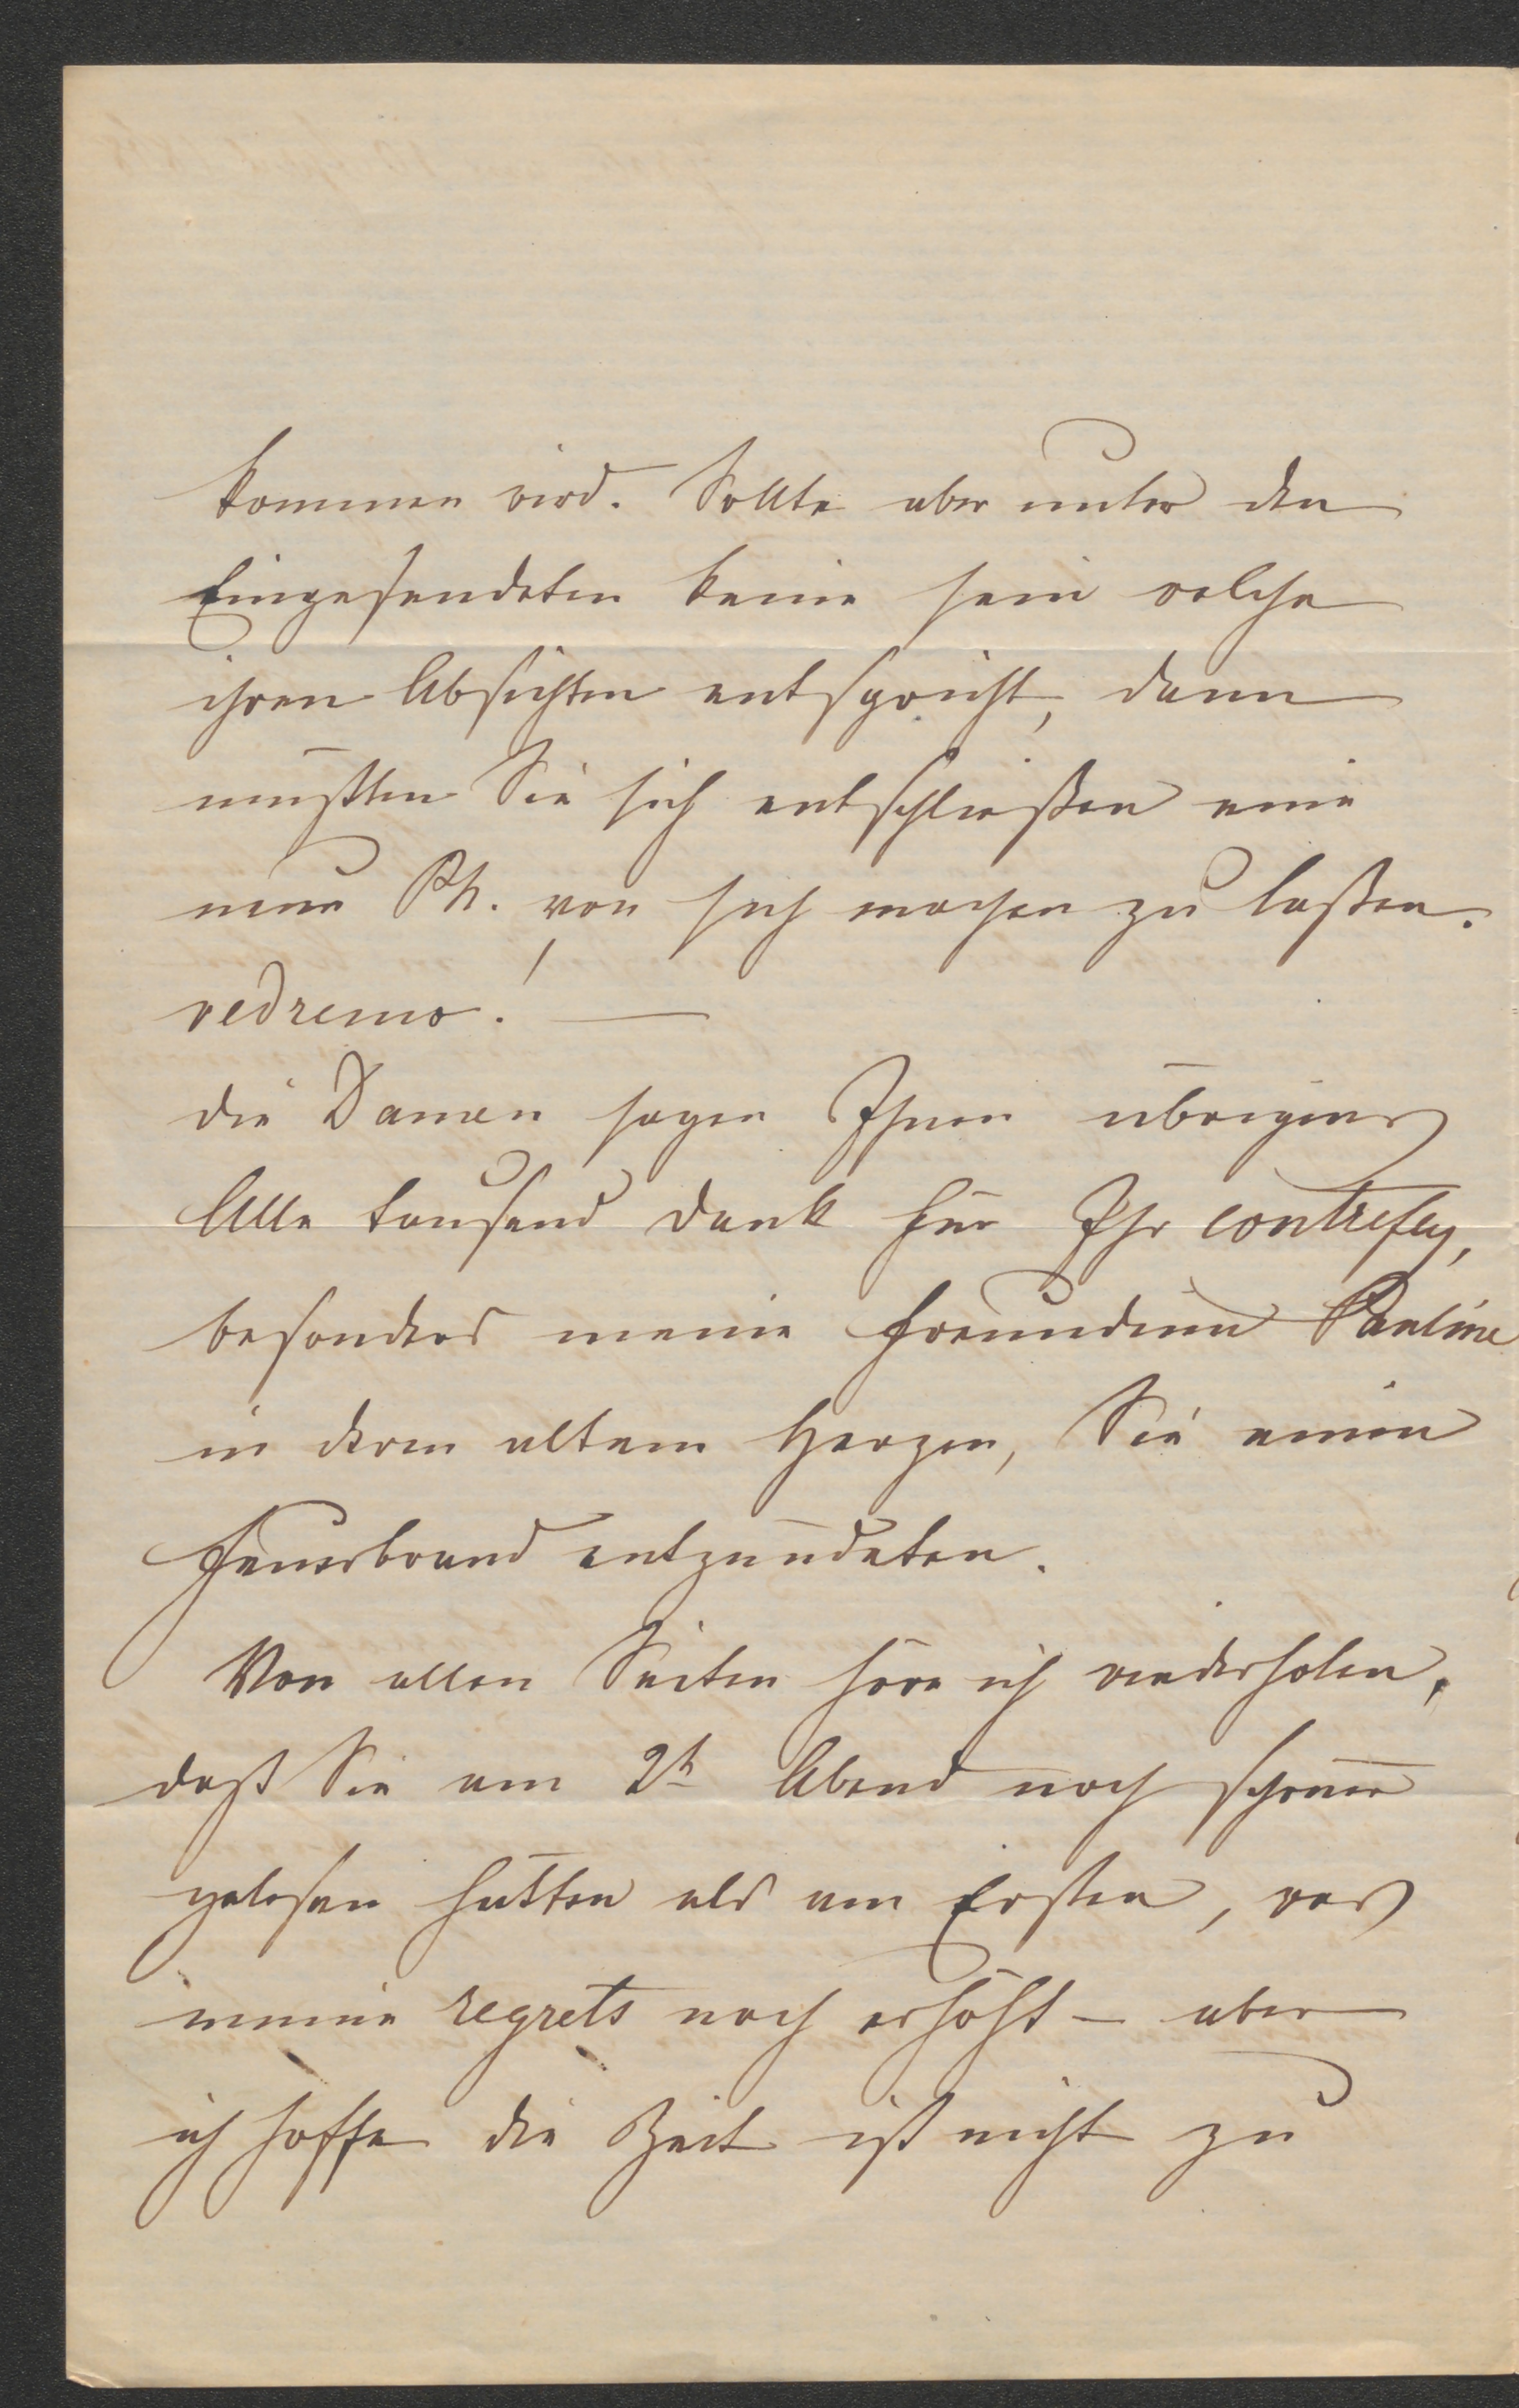 kommen wird. Sollte aber unter den
Eingesendeten keine sein welche
ihren Absichten entspricht, dann
müßten Sie sich entschließen eine
neue Ph. von sich machen zu laßen.
vedremo! —
die Damen sagen Ihnen übrigens
Alle tausend Dank für Ihr contrefey,
besonders meine Freundinn Pauline
in deren altem Herzen, Sie einen
Feuerbrand entzündeten.
Von allen Seiten höre ich wiederholen,
daß Sie am 2t Abend noch schöner
gelesen hätten als am Ersten, was
meine regrets noch erhöht – aber
ich hoffe die Zeit ist nicht zu